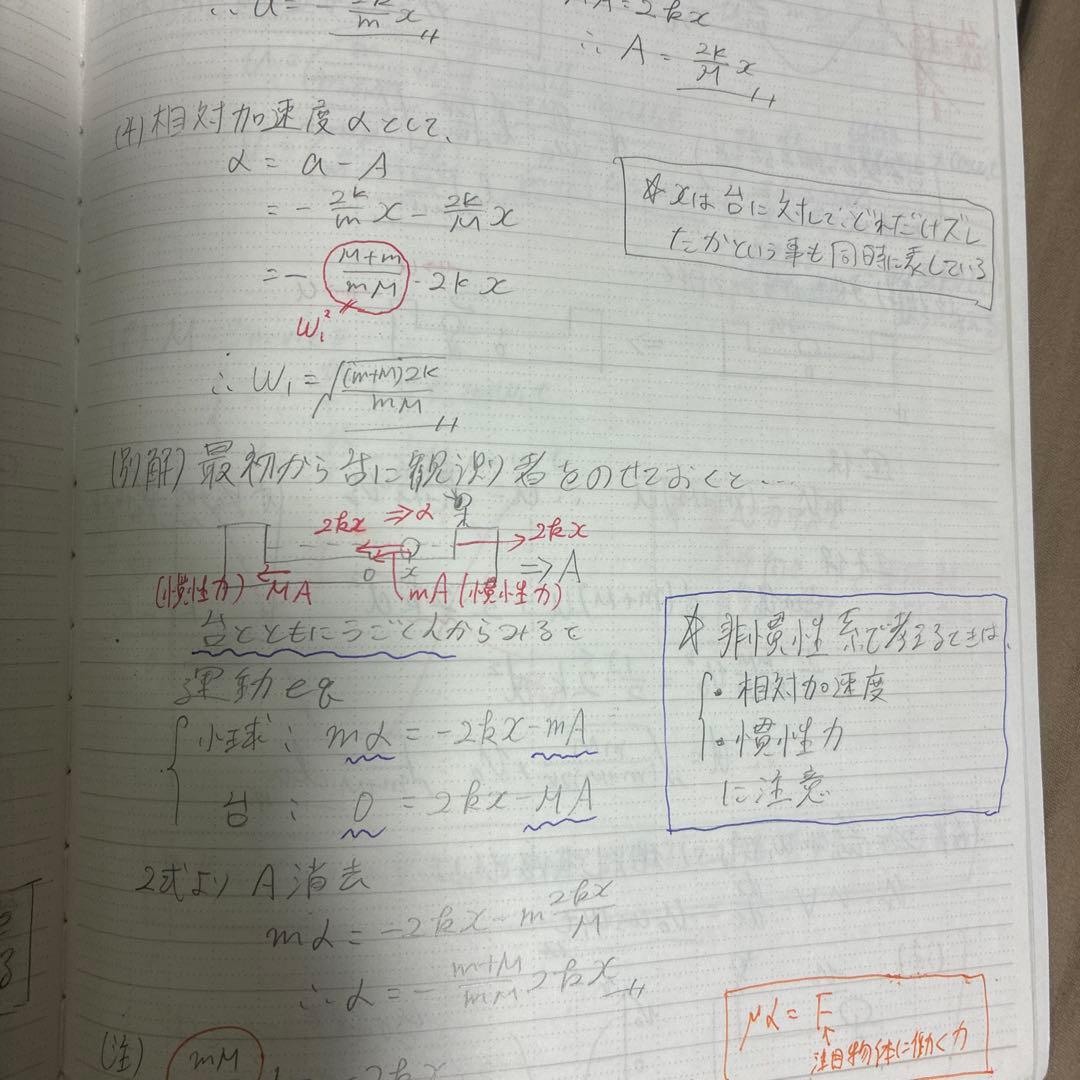 ∴ a = - 2k/m x
MA = 2kx
∴ A = 2k/M x
(4) 相対加速度 α として、
α = a - A
= - 2k/m x - 2k/M x
= - (M+m)/mM ・2kx
ω₁²
☆ xは台に対して、どれだけズレ
たかという事も同時に表している
∴ ω₁ = √((m+M)2k/mM)
(別解) 最初から台に観測者をのせておくと…
2kx ⇒α 2kx
0 x ⇒A
(慣性力) MA mA (慣性力)
台とともにうごく人からみると
運動eq
小球: mα = -2kx - mA
台: 0 = 2kx - MA
☆ 非慣性系で考えるときは、
・相対加速度
・慣性力
に注意
2式より A 消去
mα = -2kx - m 2kx/M
∴ α = - (m+M)/mM 2kx
μα = F
注目物体に働く力
(注) mM
= -2kx